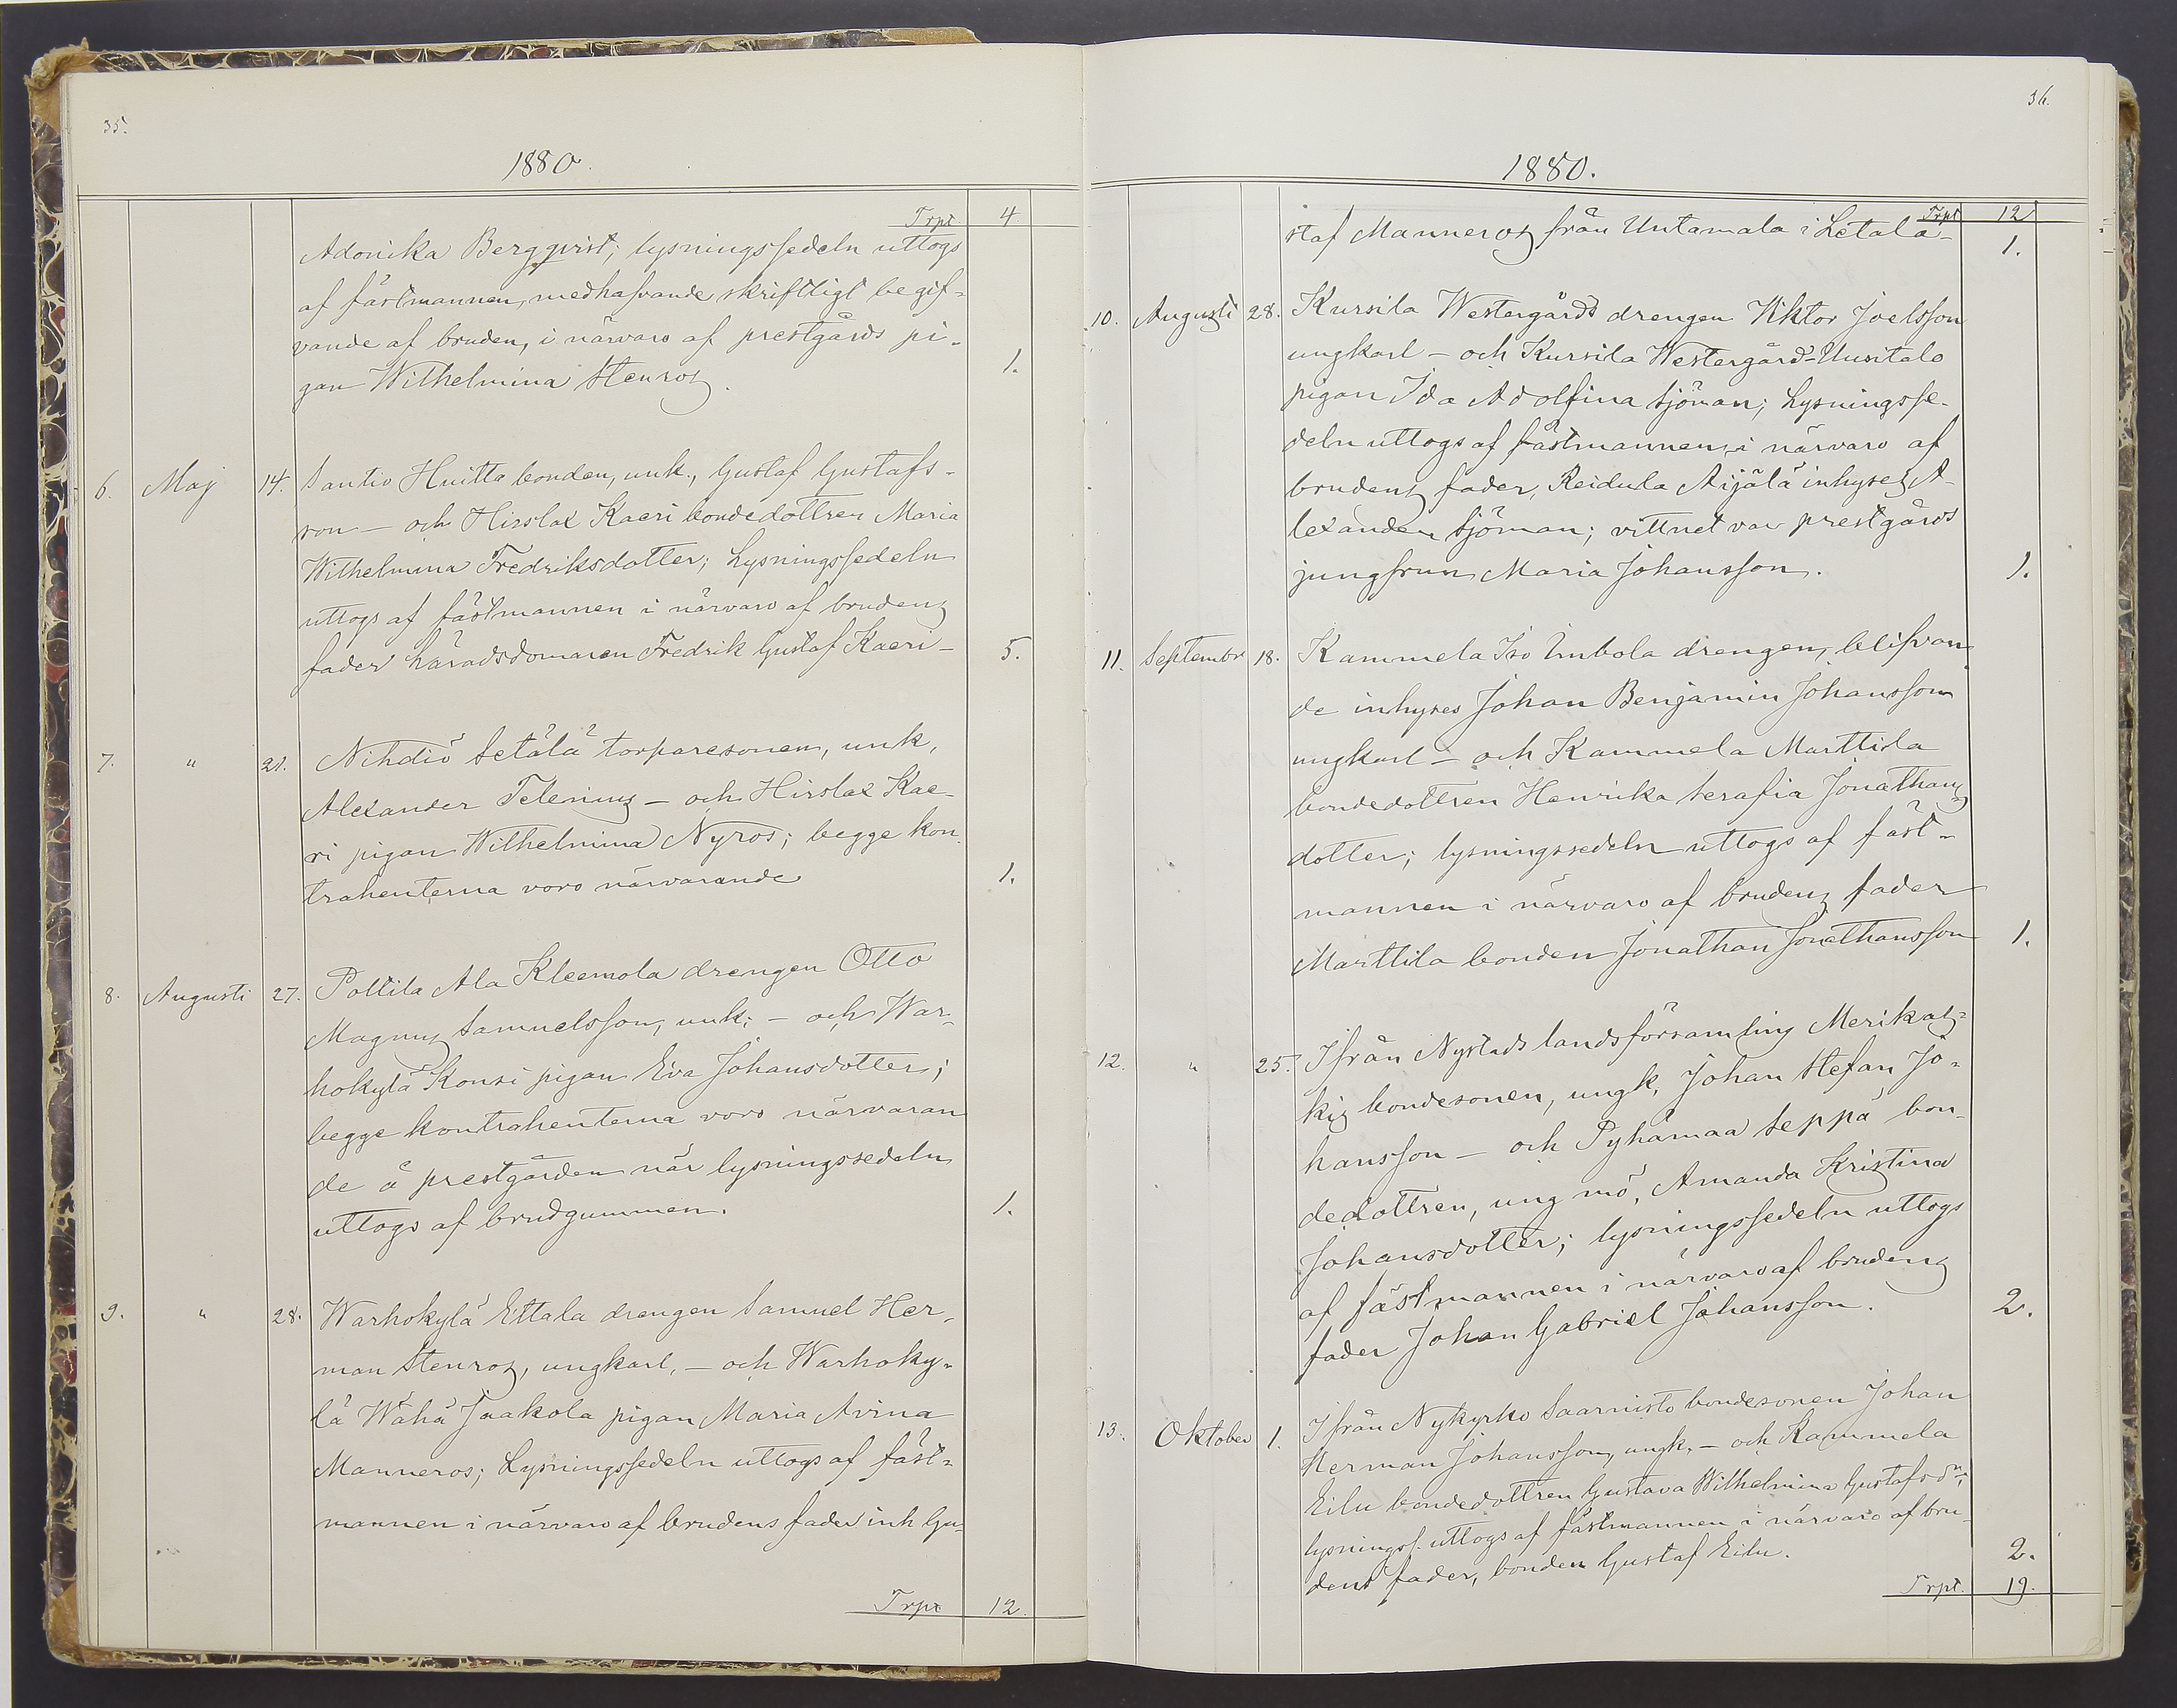 35.
1880.
Trpt 4
Adonika Bergqvist; lysningssedeln uttogs
af fästmannen, medhafvande skriftligt begif-
vande af bruden, i närvaro af prestgårds pi-
gan Wilhelmina Stenros. 1.
6. Maj 14. Santio Huitta bonden, unk., Gustaf Gustafs-
son – och Hirslax Kaeri bondedottren Maria
Wilhelmina Fredriksdotter; Lysningssedeln
uttogs af fästmannen i närvaro af brudens
fader häradsdomaren Fredrik Gustaf Kaeri – 5.
7. " 21. Nihdiö Setälä torparesonen, unk,
Alexander Telenius – och Hirslax Kae-
ri pigan Wilhelmina Nyros; begge kon-
trahenterna voro närvarande 1.
8. Augusti 27. Pottila Ala Kleemola drengen Otto
Magnus Samuelsson, unk; – och War-
hokylä Konsi pigan Eva Johansdotter;
begge kontrahenterna voro närvaran
de å prestgården när lysningssedeln
uttogs af brudgummen. 1.
9. " 28. Warhokylä Ettala drengen Samuel Her-
man Stenros, ungkarl, – och Warhoky-
lä Wähä Jaakola pigan Maria Avina
Manneros; Lysningssedeln uttogs af fäst-
mannen i närvaro af brudens fader inh Gu-
Trpt 12.
36.
1880.
Trpt 12
staf Manneros från Untamala i Letala – 1.
10. Augusti 28. Kursila Westergårds drengen Viktor Joelsson
ungkarl – och Kursila Westergård-Uusitalo
pigan Ida Adolfina Sjöman; Lysningsse-
deln uttogs af fästmannen, i närvaro af
brudens fader, Reidula Äijälä inhyses A-
lexander Sjöman; vittnet var prestgårds
jungfrun Maria Johansson. 1.
11. Septembr 18. Kammela Iso Imbola drengen, blifvan
de inhyses Johan Benjamin Johansson
ungkarl – och Kammela Marttila
bondedottren Henrika Serafia Jonathans
dotter; lysningssedeln uttogs af fäst-
mannen i närvaro af brudens fader
Marttila bonden Jonathan Jonathansson 1.
12. " 25. Ifrån Nystads landsförsamling Merikas-
kis bondesonen, ungk, Johan Stefan Jo-
hansson – och Pyhämaa Seppä bon-
dedottren, ung mö, Amanda Kristina
Johansdotter; lysningssedeln uttogs
af fästmannen i närvaro af brudens
fader Johan Gabriel Johansson. 2.
13. Oktober 1. Ifrån Nykyrko Saarnisto bondesonen Johan
Herman Johansson, ungk, – och Kammela
Eilu bondedottren Gustava Wilhelmina Gustafsdr;
lysningss. uttogs af fästmannen i närvaro af bru-
dens fader, bonden Gustaf Eilu. 2.
Trpt. 19.